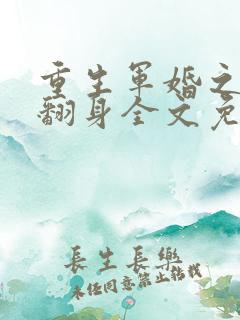 重生軍婚之
翻身全文免
長生長樂
未经同意禁止转载